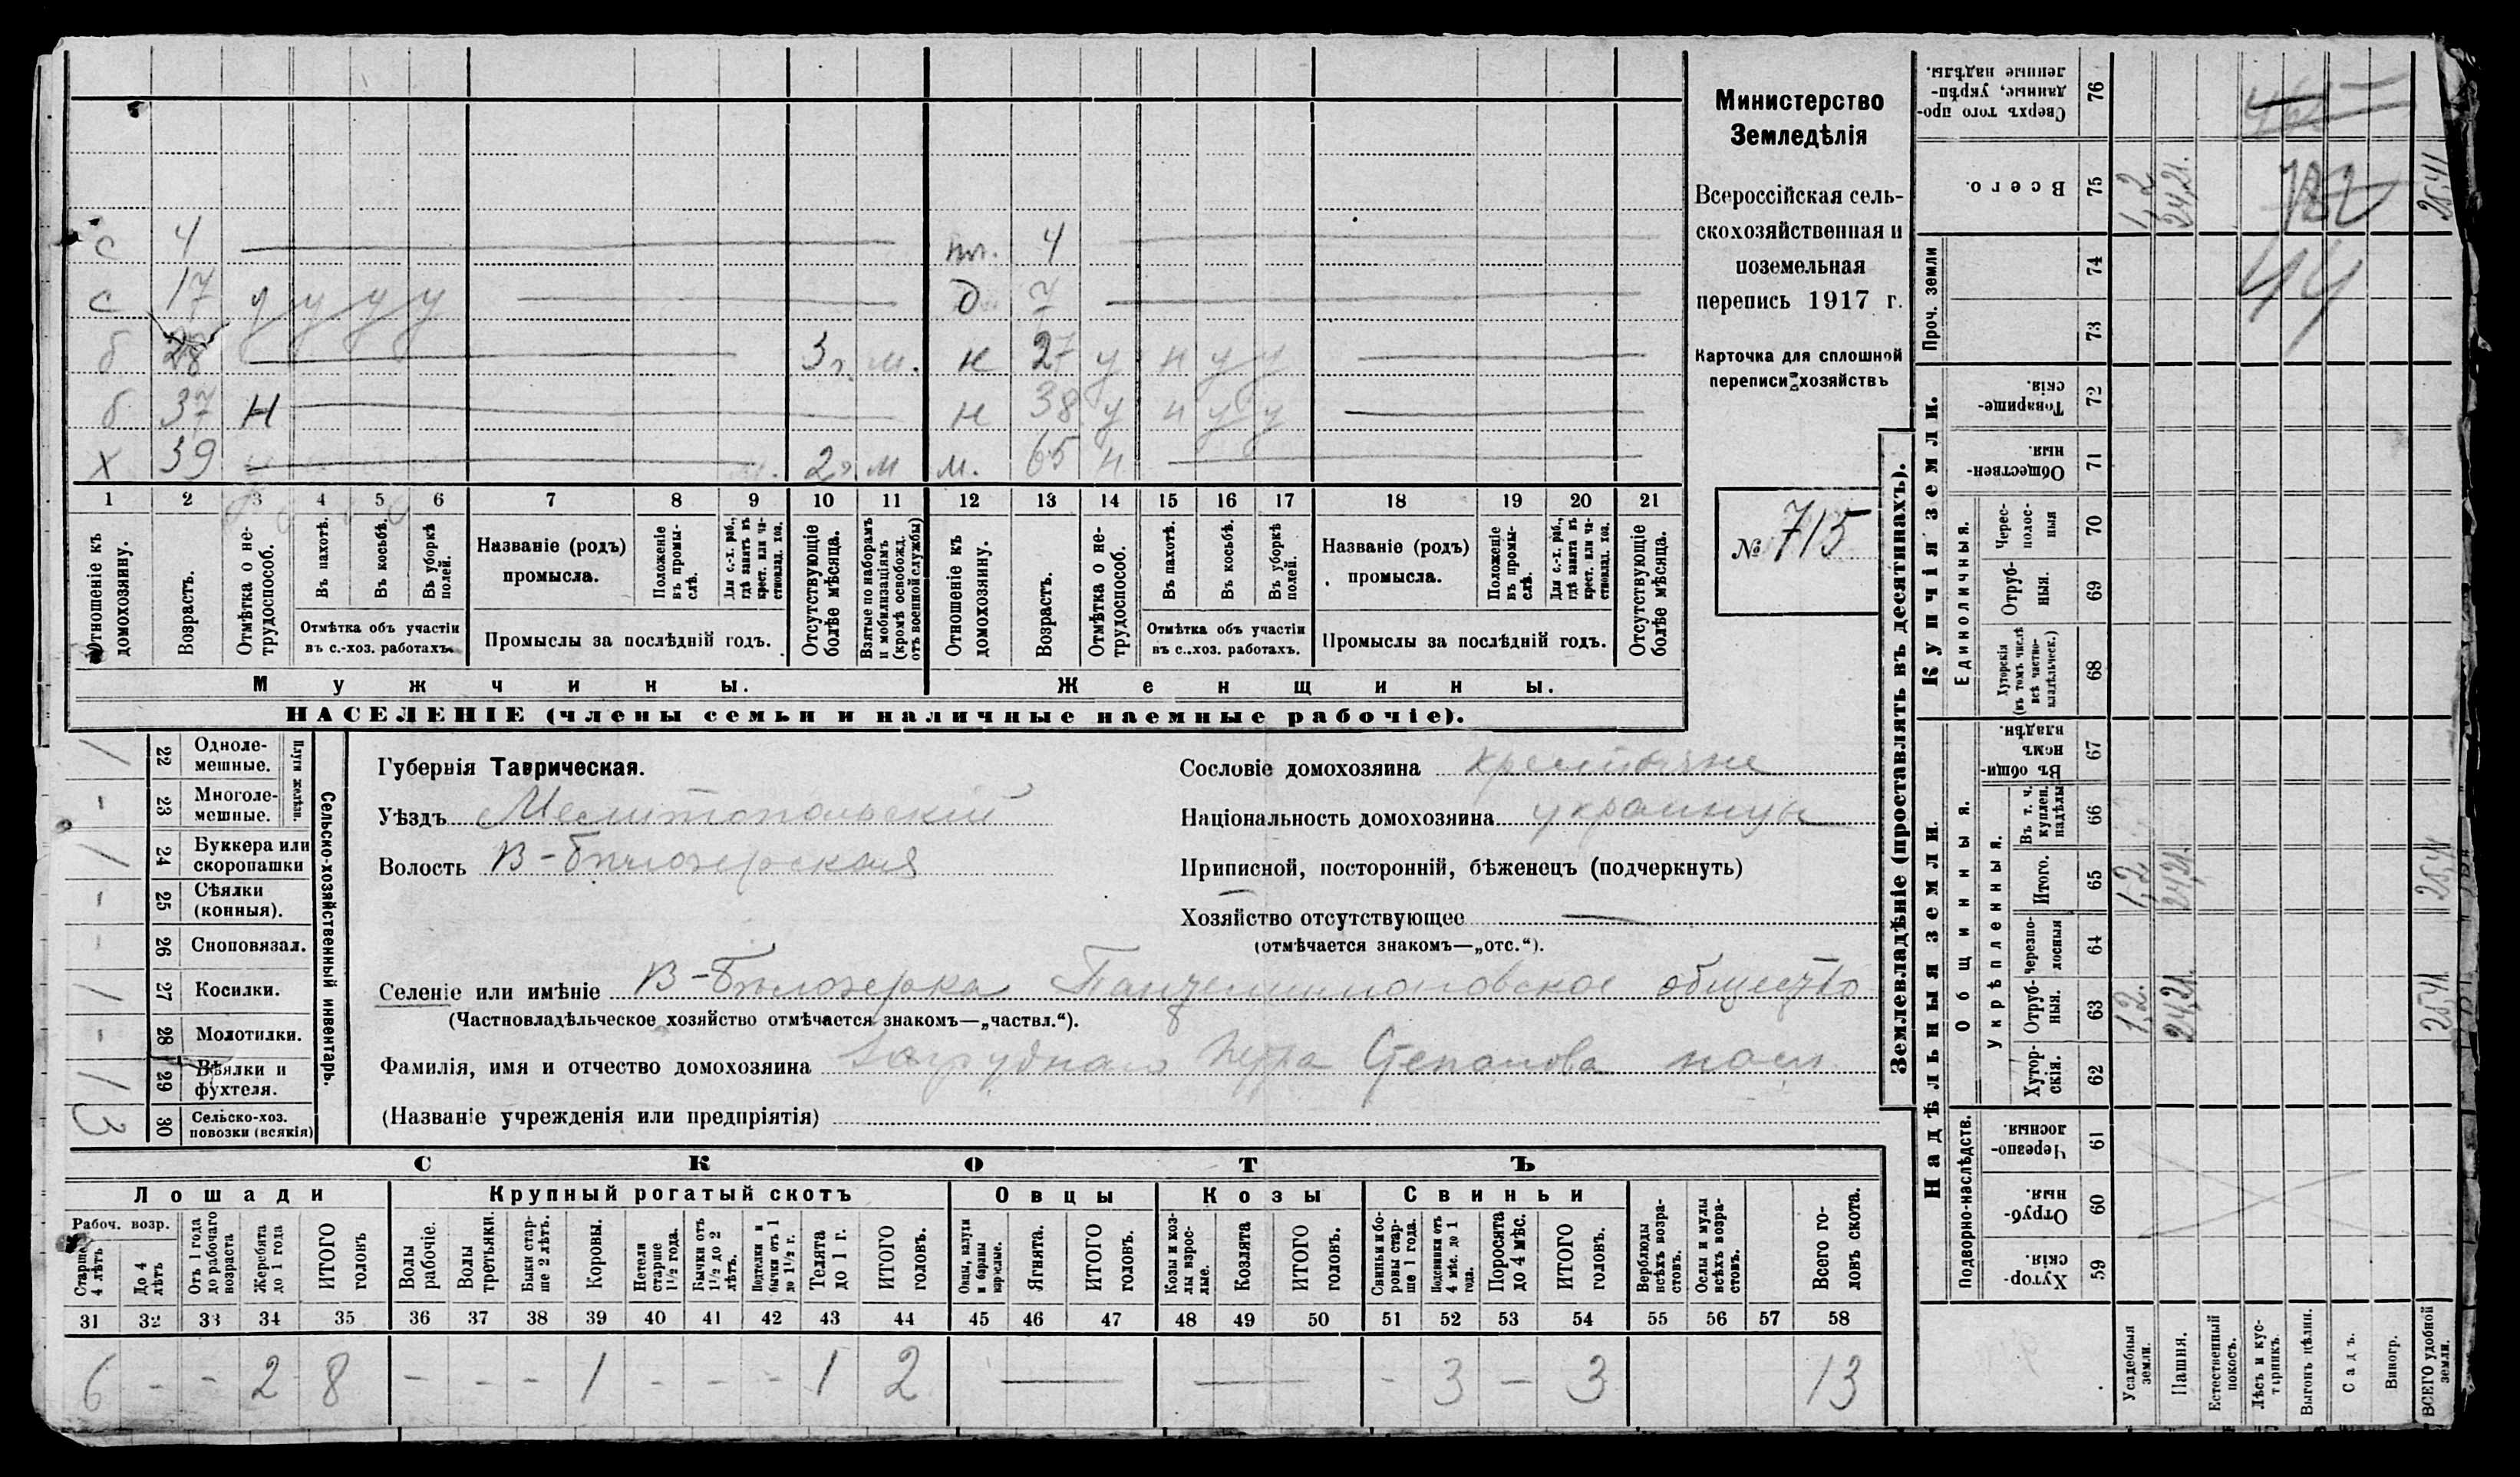 Министерство
Земледѣлія
Всероссійская сель-
скохозяйственная и
поземельная
перепись 1917 г.
Карточка для сплошной
переписи хозяйствъ
№ 715
с 4 пл. 4
с 17 у у у у д 7
б 28 3 г. м. н 27 у н у у
б 37 Н н 38 у н у у
х 39 2 г. м м. 65 н
1 2 3 4 5 6 7 8 9 10 11 12 13 14 15 16 17 18 19 20 21
Отношеніе къ домохозяину.
Возрастъ.
Отмѣтка о не-трудоспособ.
Въ пахотѣ.
Въ косьбѣ.
Въ уборкѣ полей.
Отмѣтка объ участіи
въ с.-хоз. работахъ.
Названіе (родъ)
промысла.
Положеніе въ промы-слѣ.
Для с.-х. раб., гдѣ занятъ въ крест. или ча-стновлад. хоз.
Промыслы за послѣдній годъ.
Отсутствующіе болѣе мѣсяца.
Взятые по наборамъ и мобилизаціямъ (кромѣ освобожд. отъ военной службы)
Отношеніе къ домохозяину.
Возрастъ.
Отмѣтка о не-трудоспособ.
Въ пахотѣ.
Въ косьбѣ.
Въ уборкѣ полей.
Отмѣтка объ участіи
въ с.-хоз. работахъ.
Названіе (родъ)
промысла.
Положеніе въ промы-слѣ.
Для с.-х. раб., гдѣ занята въ крест. или ча-стновлад. хоз.
Промыслы за послѣдній годъ.
Отсутствующіе болѣе мѣсяца.
Мужчины. Женщины.
НАСЕЛЕНІЕ (члены семьи и наличные наемные рабочіе).
Сельско-хозяйственный инвентарь.
Плуги желѣзн.
/ 22 Одноле-мешные.
- 23 Многоле-мешные.
/ 24 Буккера или скоропашки
- 25 Сѣялки (конныя).
- 26 Сноповязал.
/ 27 Косилки.
- 28 Молотилки.
/ 29 Вѣялки и фухтеля.
3 30 Сельско-хоз. повозки (всякія)
Губернія Таврическая.
Уѣздъ Мелитопольскій
Волость В-Бѣлозерская
Сословіе домохозяина крестьяне
Національность домохозяина украинцы
Приписной, посторонній, бѣженецъ (подчеркнуть)
Хозяйство отсутствующее —
(отмѣчается знакомъ—„отс.“).
Селеніе или имѣніе В-Бѣлозерка Пантелимоновское общество
(Частновладѣльческое хозяйство отмѣчается знакомъ—„частвл.“).
Фамилія, имя и отчество домохозяина Петра Степанова
(Названіе учрежденія или предпріятія)
СКОТЪ
Лошади Крупный рогатый скотъ Овцы Козы Свиньи
Рабоч. возр.
Старше 4 лѣтъ
До 4 лѣтъ
Отъ 1 года до рабочаго возраста
Жеребята до 1 года
ИТОГО головъ
Волы рабочіе.
Волы третьяки.
Быки стар-ше 2 лѣтъ.
Коровы.
Нетели старше 1½ года.
Бычки отъ 1½ до 2 лѣтъ.
Подтелки и бычки отъ 1 до 1½ г.
Телята до 1 г.
ИТОГО головъ.
Овцы, валухи и бараны взрослые.
Ягнята.
ИТОГО головъ.
Козы и коз-лы взрос-лые.
Козлята
ИТОГО головъ.
Свиньи и бо-ровы стар-ше 1 года.
Подсвинки отъ 4 мѣс. до 1 года.
Поросята до 4 мѣс.
ИТОГО головъ.
Верблюды всѣхъ возра-стовъ.
Ослы и мулы всѣхъ возра-стовъ.
Всего го-ловъ скота.
31 32 33 34 35 36 37 38 39 40 41 42 43 44 45 46 47 48 49 50 51 52 53 54 55 56 57 58
6 - - 2 8 - - - 1 - - - 1 2 — — - 3 - 3 13
Землевладѣніе (проставлять въ десятинахъ).
Надѣльныя земли.
Купчія земли.
Подворно-наслѣдств.
Общинныя.
Укрѣпленныя.
Единоличныя.
Проч. земли
Хутор-скія 59
Отруб-ныя. 60
Черезпо-лосныя. 61
Хутор-скія. 62
Отруб-ныя. 63
Черезпо-лосныя 64
Итого. 65
Въ т. ч. куплен. надѣлы 66
Въ общин-номъ владѣн. 67
Хуторскія (въ томъ числѣ всѣ частно-владѣльческ.) 68
Отруб-ныя. 69
Черес-полос-ныя 70
Обществен-ныя 71
Товарище-скія. 72
73
74
Всего. 75
Сверхъ того про-данные, укрѣп-ленные надѣлы. 76
Усадебныя земли. 1,2. 1,2 1,2
Пашня. 24,21. 24,21. 24,21.
Естественный покосъ.
Лѣсъ и кус-тарникъ.
Выгонъ цѣлин.
Садъ.
Виногр.
ВСЕГО удобной земли. 25,41 25,41 25,41
44